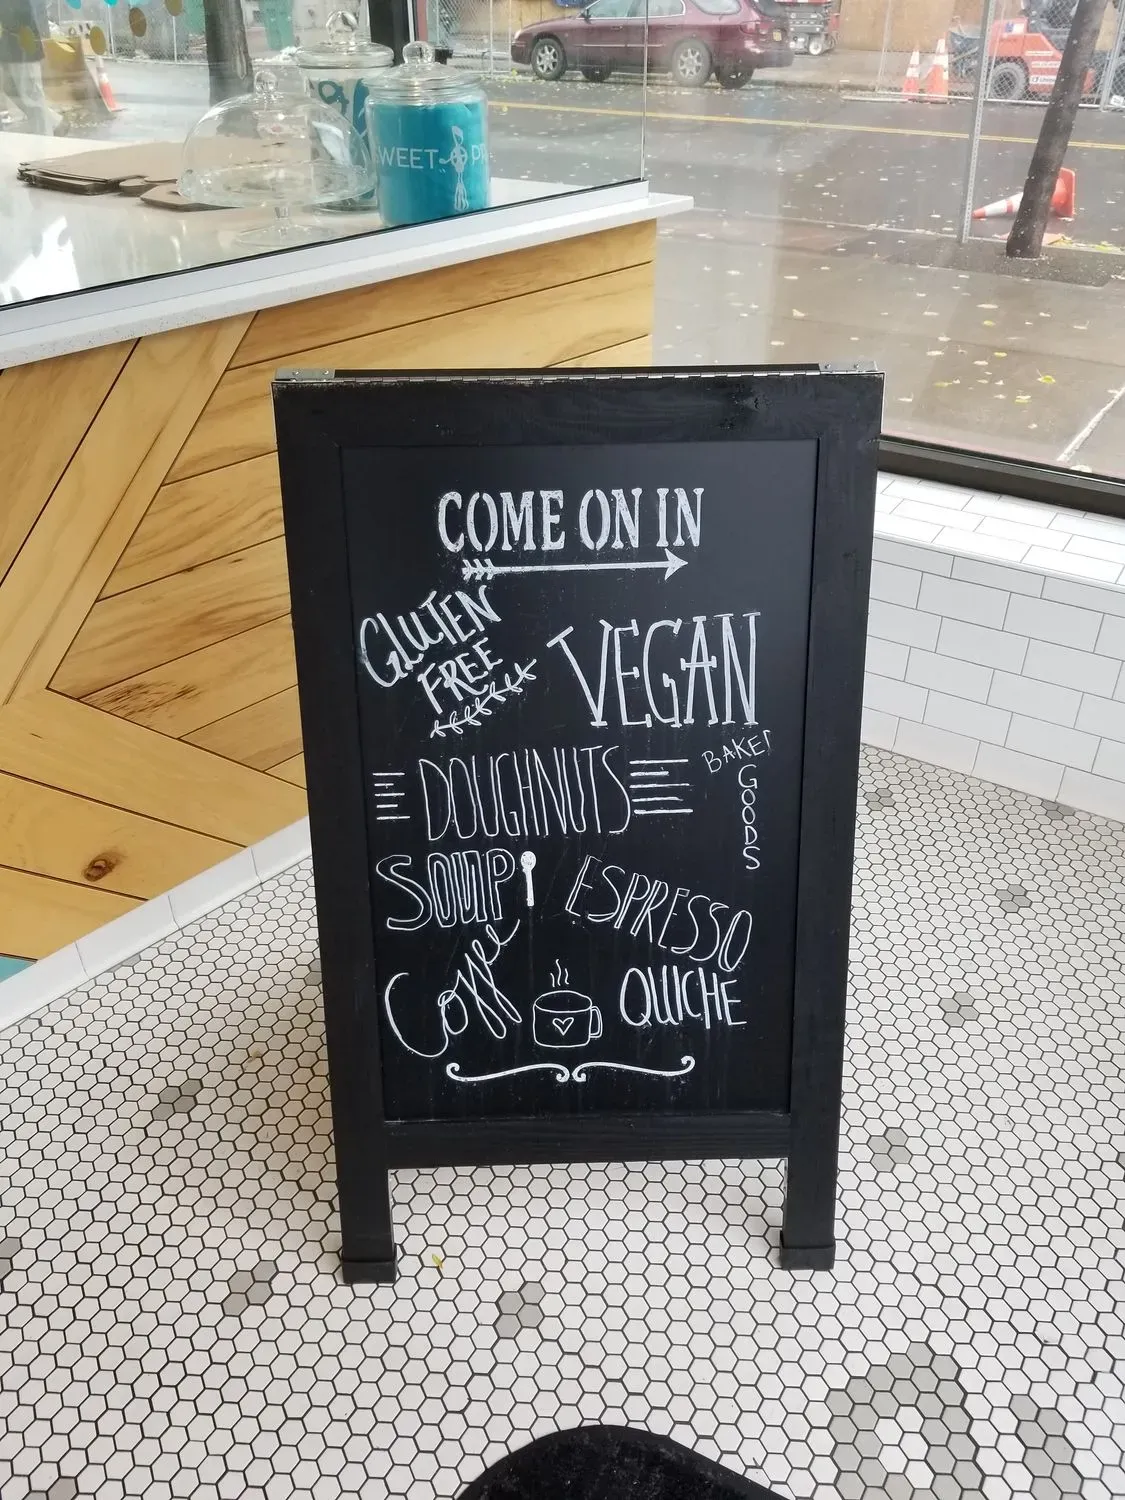 WEET PR
COME ON IN
GLUTEN
FREE
VEGAN
BAKED
GOODS
DOUGHNUTS
SOUP
ESPRESSO
Coffee
QUICHE